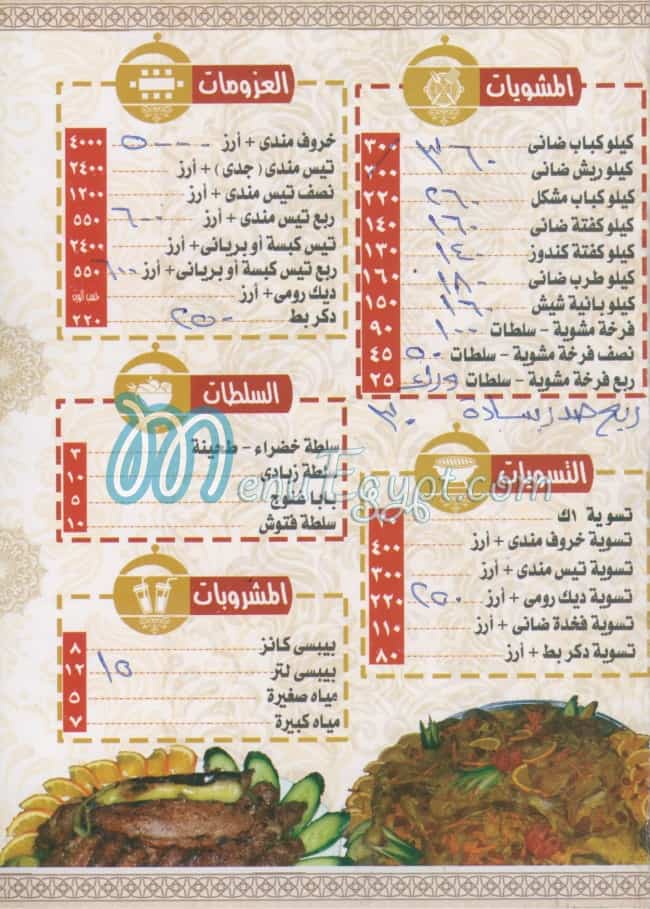 المشويات
كيلو كباب ضانى ٣٠٠ ٣٦٠
كيلو ريش ضانى
كيلو كباب مشكل ٢٢٠ ٢٦٠
كيلو كفتة ضانى ١٤٠
كيلو كفتة كندوز ١٣٠
كيلو طرب ضانى ١٦٠
كيلو بانية شيش ١٥٠
فرخة مشوية - سلطات ٩٠ ١٠٠
نصف فرخة مشوية - سلطات ٤٥ ٥٠
ربع فرخة مشوية - سلطات ٢٥ ورك
ربع صدر سادة ٣٠
التسويات
تسوية ١ك
تسوية خروف مندى + أرز ٤٠٠
تسوية تيس مندى + أرز ٣٠٠
تسوية ديك رومى + أرز ٢٢٠ ٢٥٠
تسوية فخدة ضانى + أرز ١١٠
تسوية دكر بط + أرز ٨٠
العزومات
خروف مندى + أرز ٤٠٠٠ ٥٠٠٠
تيس مندى ( جدى ) + أرز ٢٤٠٠
نصف تيس مندى + أرز ١٢٠٠
ربع تيس مندى + أرز ٥٥٠ ٦٠٠
تيس كبسة أو بريانى + أرز ٢٤٠٠
ربع تيس كبسة أو بريانى + أرز ٥٥٠ ٦٠٠
ديك رومى + أرز
دكر بط ٢٢٠ ٢٥٠
السلطات
سلطة خضراء - طحينة ٣
سلطة زبادى ١٠
بابا غنوج ٥
سلطة فتوش ١٠
المشروبات
بيبسى كانز ٨
بيبسى لتر ١٢ ١٥
مياه صغيرة ٥
مياه كبيرة ٧
MenuEgypt.com